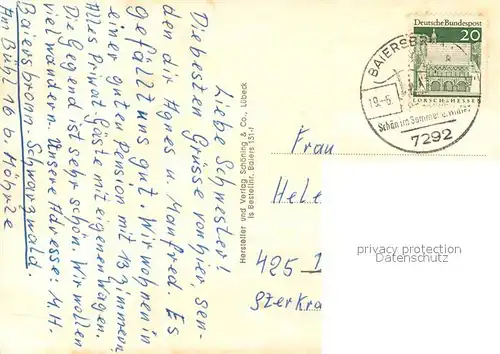 Liebe Schwester!
Die besten Grüsse von hier, sen-
den dir Agnes u. Manfred. Es
gefällt uns gut. Wir wohnen in
einer guten Pension mit 13 Zimmern.
Alles Privat Gäste mit eigenen Wagen.
Die Gegend ist sehr schön. Wir wollen
viel wandern. Unsere Adresse: M. H.
Baiersbronn-Schwarzwald.
Am Bühl 16 b. Möhrle
Hersteller und Verlag Schöning & Co., Lübeck
Bestellnr. Baiers
Deutsche Bundespost
20
LORSCH-HESSEN
BAIERSBR
19.-6.
Schön im Sommer u. Winter
7292
Frau
Hele
425
privacy protection
Datenschutz